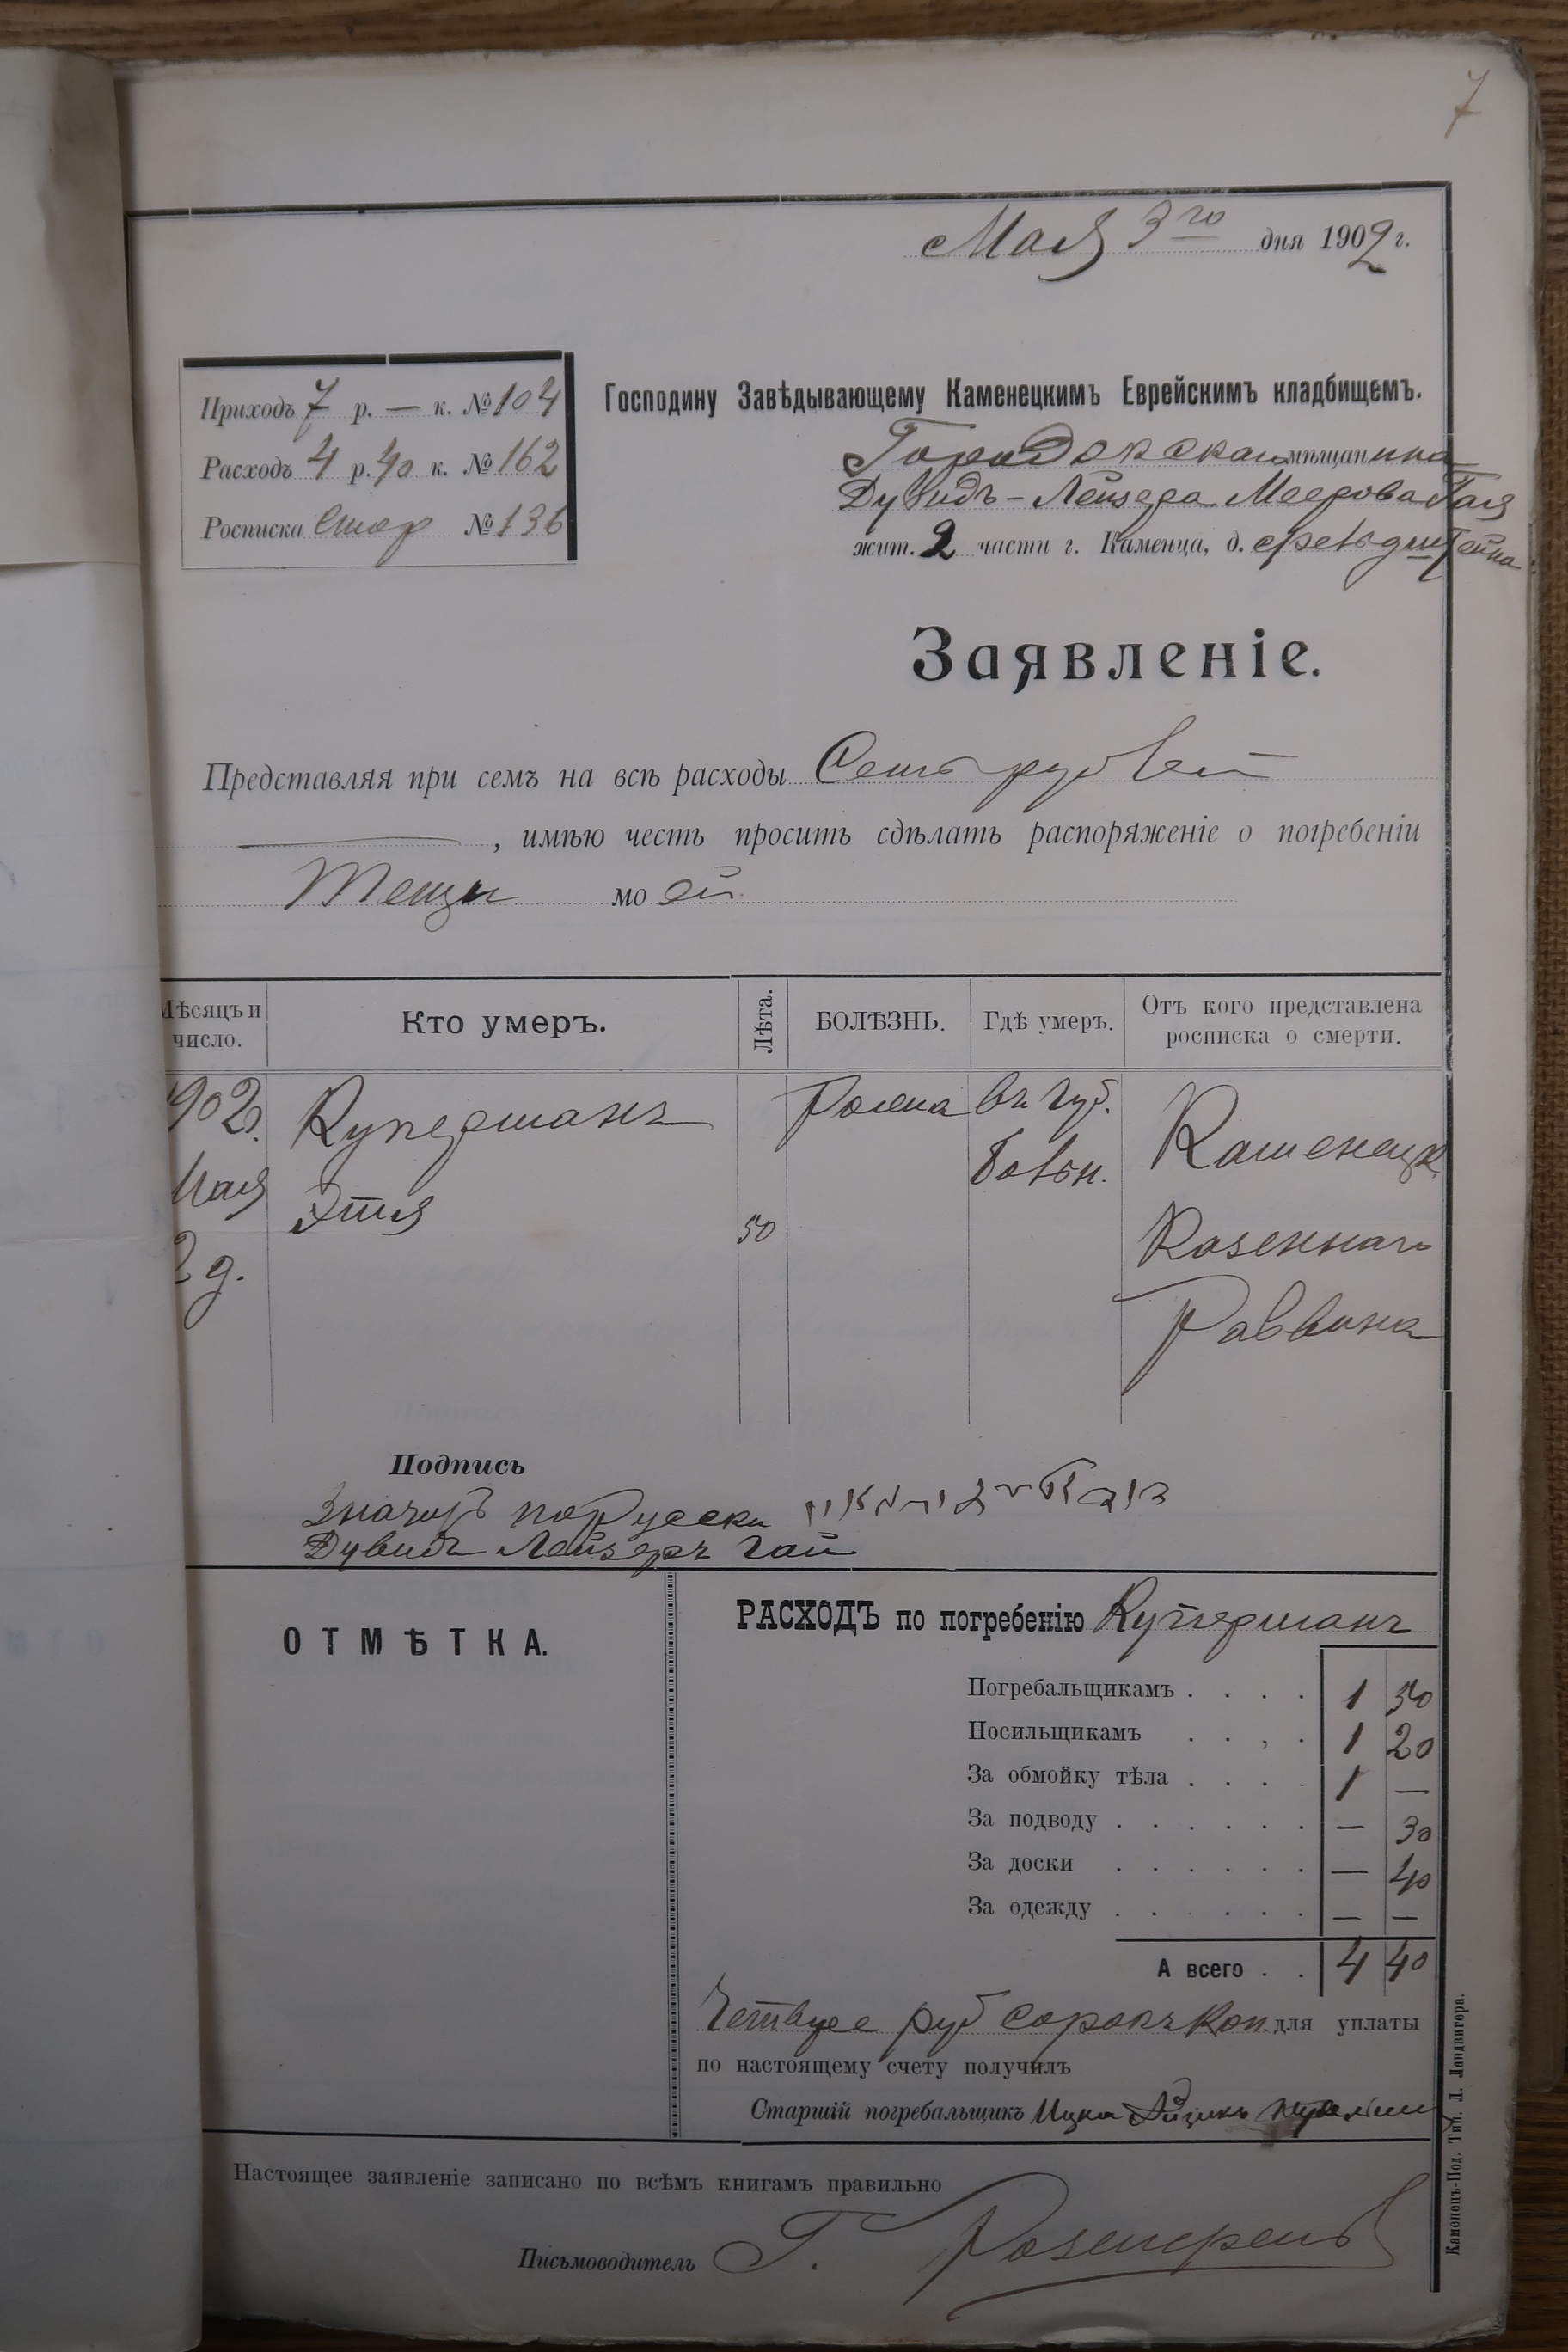 7
Мая 3го дня 1902 г.
Приходъ 7 р. — к. № 104
Расходъ 4 р. 40 к. № 162
Росписка № 136
Господину Завѣдывающему Каменецкимъ Еврейскимъ кладбищемъ.
мѣщанина
Дувидъ-Лейзера Меерова Гая
жит. 2 части г. Каменца, д.
Заявленіе.
Представляя при семъ на всѣ расходы Семь рублей
—, имѣю честь просить сдѣлать распоряженіе о погребеніи
Тещи моей
Мѣсяцъ и число.
Кто умеръ.
Лѣта.
БОЛѢЗНЬ.
Гдѣ умеръ.
Отъ кого представлена росписка о смерти.
902г. Купершанъ Рожа въ Губ. Каменецк.
Мая Этля Больн. Казеннаго
2 д. 50 Раввина
Подпись
Значитъ по Русски
Дувидъ Лейзеръ Гай
ОТМѢТКА.
РАСХОДЪ по погребенію Купершанъ
Погребальщикамъ . . . . 1 50
Носильщикамъ . . , . 1 20
За обмойку тѣла . . . . 1 —
За подводу . . . . . . — 30
За доски . . . . . . — 40
За одежду . . . . . . — —
А всего . . 4 40
Четыре руб сорокъ Коп. для уплаты
по настоящему счету получилъ
Старшій погребальщикъ Ицка Айзикъ
Настоящее заявленіе записано по всѣмъ книгамъ правильно
Письмоводитель Г.
Каменецъ-Под. Тип. Л. Ландвигера.